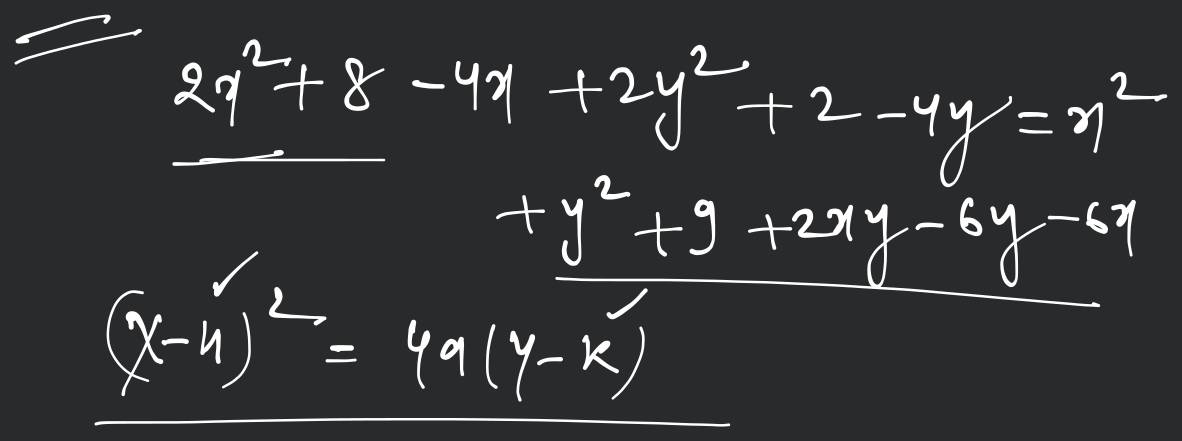 2x² + 8 - 4x + 2y² + 2 - 4y = x²
+ y² + 9 + 2xy - 6y - 6x
(x-h)² = 4a(y-k)